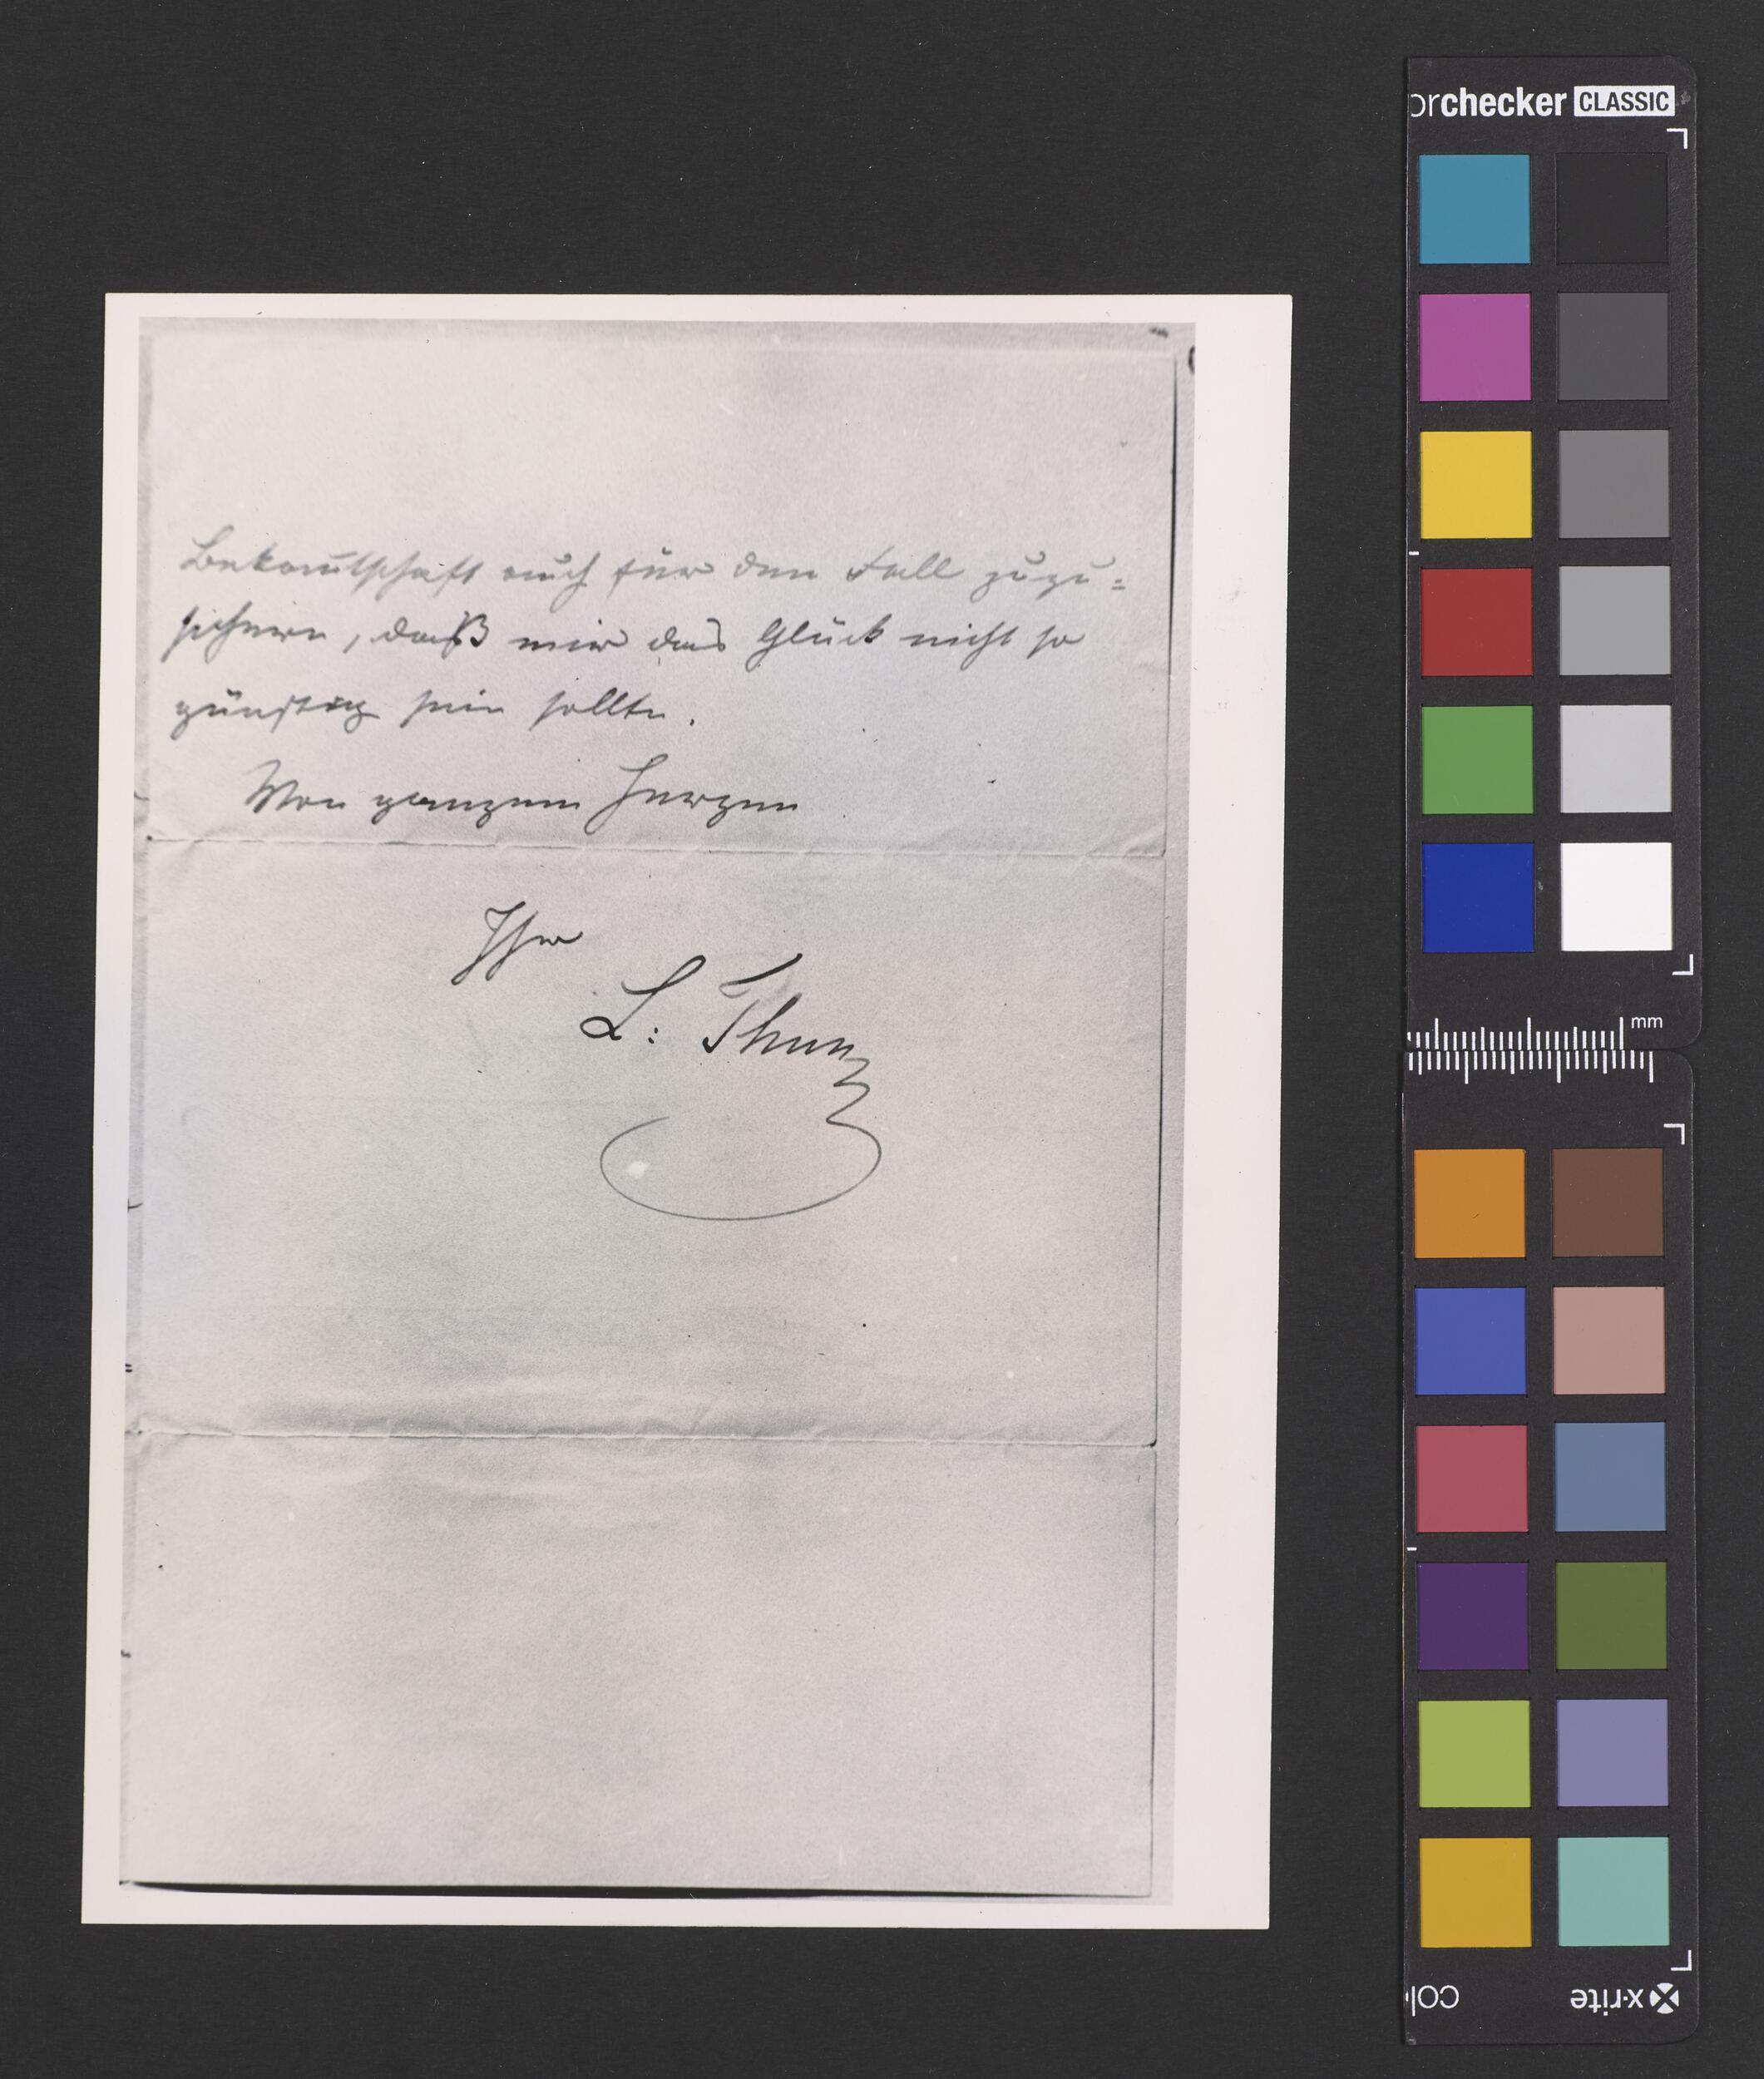 orchecker CLASSIC
Bekan̅tschaft auch für den Fall zuzu=
sichern, daß mir das Glück nicht so
günstig sein sollte.
Von ganzem Herzen
Ihr
L: Thun
mm
x-rite
col